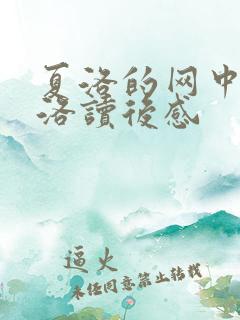 夏洛的网中
洛讀後感
逼火
未经同意禁止转载